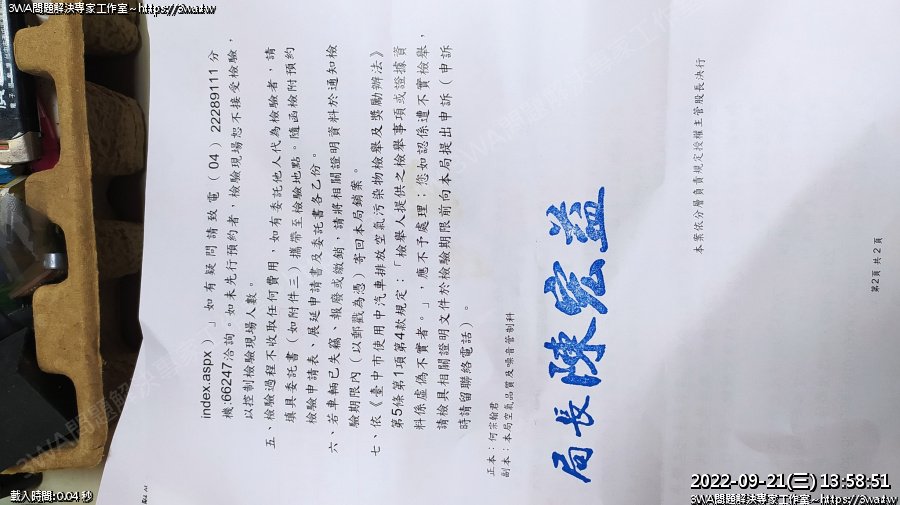 3WA問題解決專家工作室~https://3wa.tw
index.aspx)」如有疑問請致電(04)22289111分
機:66247洽詢。如未先行預約者,檢驗現場恕不接受檢驗,
以控制檢驗現場人數。
五、檢驗過程不收取任何費用,如有委託他人代為檢驗者,請
填具委託書(如附件三)攜帶至檢驗地點。隨函檢附預約
檢驗申請表、展延申請書及委託書各乙份。
六、若車輛已失竊、報廢或繳銷,請將相關證明資料於通知檢
驗期限內(以郵戳為憑)寄回本局銷案。
七、依《臺中市使用中汽車排放空氣污染物檢舉及獎勵辦法》
第5條第1項第4款規定:「檢舉人提供之檢舉事項或證據資
料係虛偽不實者。」,應不予處理;您如認係遭不實檢舉,
請檢具相關證明文件於檢驗期限前向本局提出申訴(申訴
時請留聯絡電話)。
正本:何宗翰君
副本:本局空氣品質及噪音管制科
局長陳宏益
本案依分層負責規定授權主管股長決行
第2頁 共2頁
載入時間:0.04 秒
2022-09-21(三) 13:58:51
3WA問題解決專家工作室~https://3wa.tw